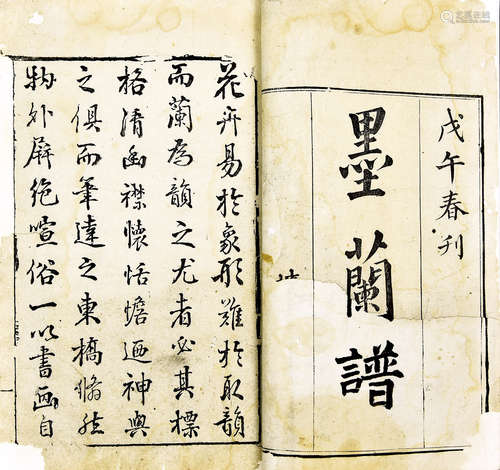 戊午春刊
墨蘭譜
花卉易於象形難於取韻
而蘭為韻之尤者必其標
格清幽襟懷恬憺迺神與
之俱而筆達之東橋翛然
物外屏絶喧俗一以書畫自